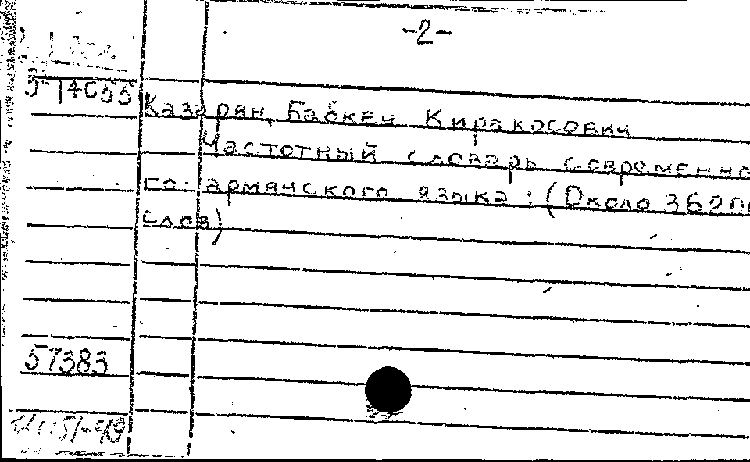 -2-
Казарян, Бабкен Киракосович
Частотный словарь современно
го армянского языка: (Около 36200
слов)
57383